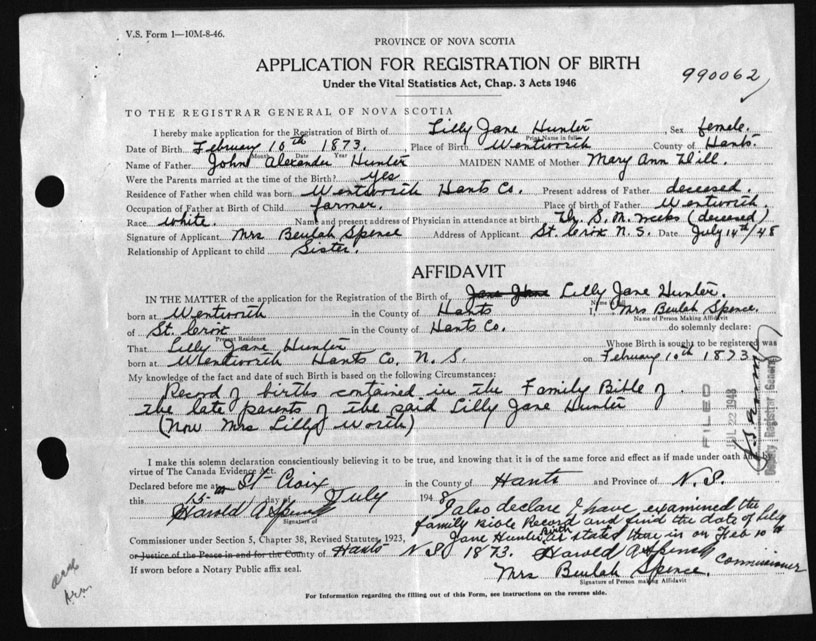 V.S. Form 1—10M-8-46.
PROVINCE OF NOVA SCOTIA
APPLICATION FOR REGISTRATION OF BIRTH
Under the Vital Statistics Act, Chap. 3 Acts 1946
990062
TO THE REGISTRAR GENERAL OF NOVA SCOTIA
I hereby make application for the Registration of Birth of Lilly Jane Hunter, Sex female.
Print Name in full
Date of Birth February 10th 1873. , Place of Birth Wentworth County of Hants.
Month Date Year
Name of Father John Alexander Hunter MAIDEN NAME of Mother Mary Ann Dill.
Were the Parents married at the time of the Birth? yes
Residence of Father when child was born Wentworth Hants Co. Present address of Father deceased.
Occupation of Father at Birth of Child farmer. Place of birth of Father Wentworth.
Race white. Name and present address of Physician in attendance at birth S. M. Weeks (deceased)
Signature of Applicant Mrs Beulah Spence Address of Applicant St. Croix N. S. Date July 14th/48
Relationship of Applicant to child Sister.
AFFIDAVIT
IN THE MATTER of the application for the Registration of the Birth of Lilly Jane Hunter.
born at Wentworth in the County of Hants I, Mrs Beulah Spence.
Name of Person Making Affidavit
of St. Croix in the County of Hants Co. do solemnly declare:
Present Residence
That Lilly Jane Hunter Whose Birth is sought to be registered was
born at Wentworth Hants Co. N. S. on February 10th 1873
My knowledge of the fact and date of such Birth is based on the following Circumstances:
Record of births contained in the Family Bible of
the late parents of the said Lilly Jane Hunter
(Now Mrs Lilly Worth)
FILED
JUL 22 1948
Deputy Registrar General
I make this solemn declaration conscientiously believing it to be true, and knowing that it is of the same force and effect as if made under oath and by
virtue of The Canada Evidence Act.
Declared before me at St Croix in the County of Hants and Province of N.S.
this 15th day of July 1948
Harold A Spence
Signature of
I also declare I have examined the
family Bible Record and find the date of Lilly
Jane Hunter Birth as stated in on Feb 10th
1873. Harold A Spence Commissioner
Commissioner under Section 5, Chapter 38, Revised Statutes 1923,
or Justice of the Peace in and for the County of Hants N S
If sworn before a Notary Public affix seal.
Mrs Beulah Spence.
Signature of Person making Affidavit
For Information regarding the filling out of this Form, see instructions on the reverse side.